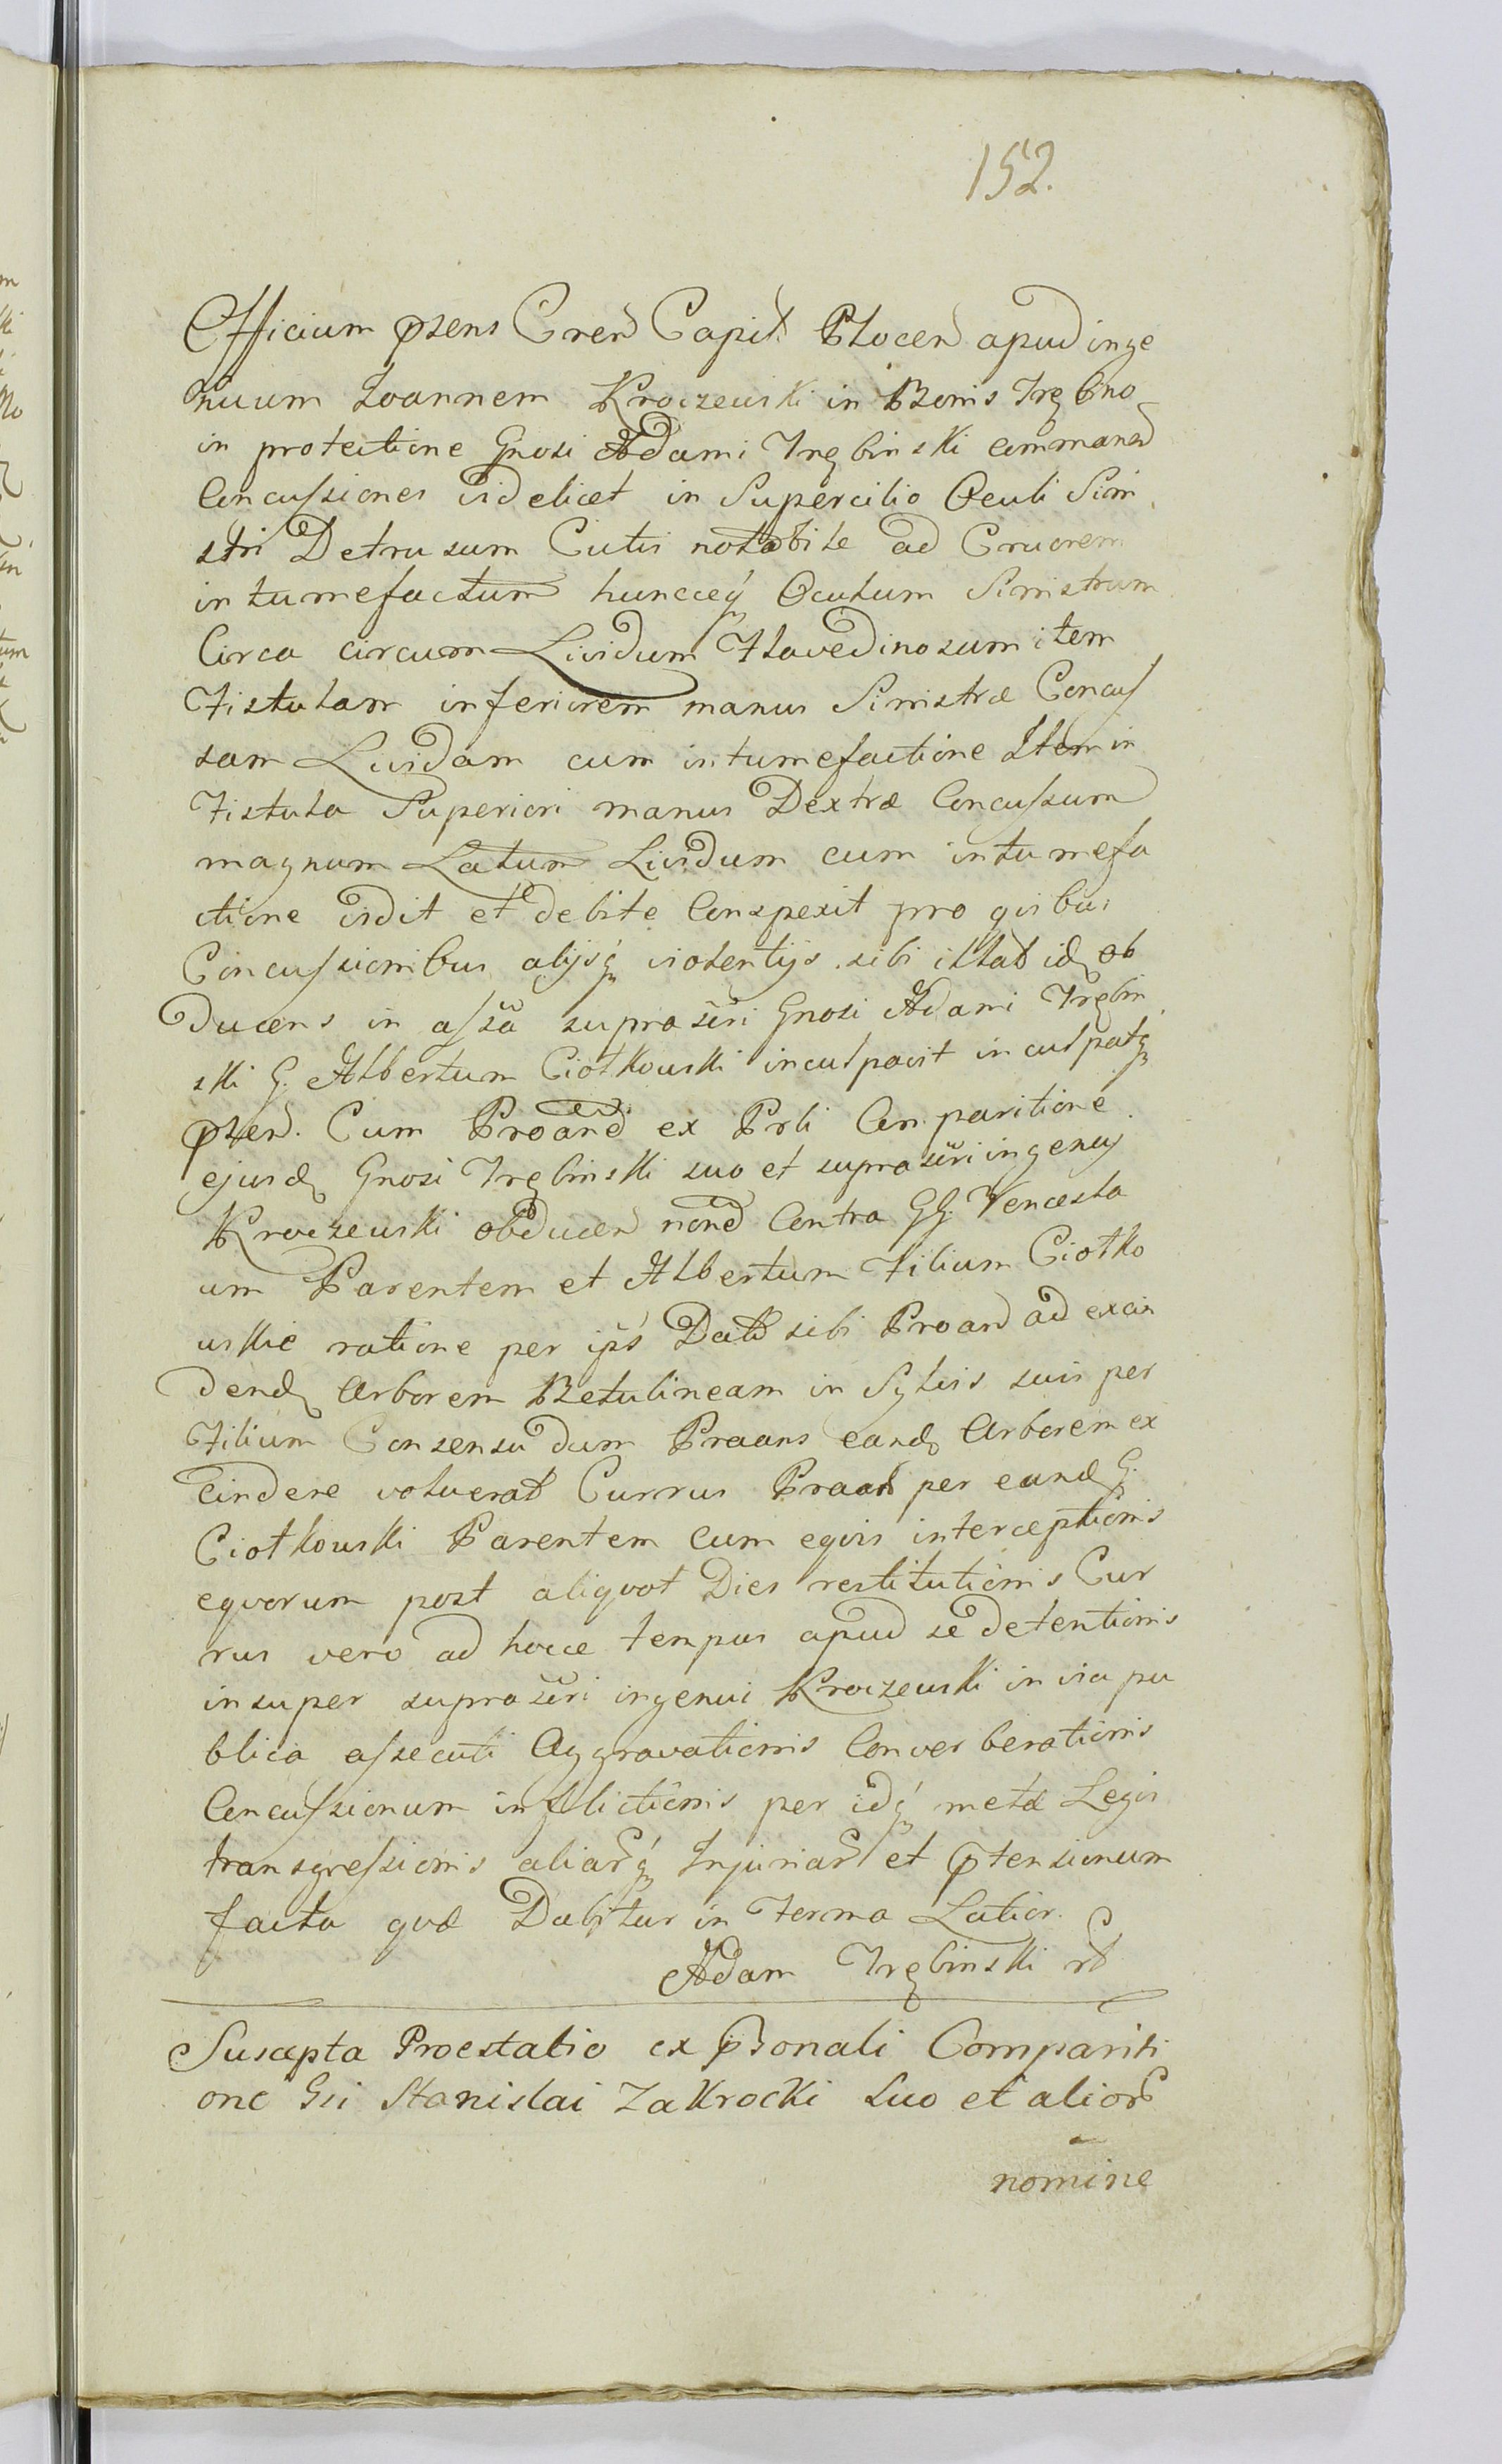 152.
Officium pzens Cren Capit Plocen apud inge
nuum Joannem Kroczewski in Bonis Trębino
in protectione Gnosi Adami Trębinski commanen
Concussiones videlicet in Supercilio Oculi Sini
stri Detrusum Cutis notabile ad Cruorem
intumefactum huncceq Oculum Sinistrum
Circa circum Lividum Flavedinosum item
Fistulam inferiorem manus Sinistræ Concus
sam Lividam cum intumefactione Item in
Fistula Superiori manus Dextræ Concussum
magnum Latum Lividum cum intumefa
ctione vidit et debite Conspexit pro qvibus
Concussionibus alijsq violentijs sibi illat id ob
Ducens in assa suprascri Gnosi Adami Trębin
ski G. Albertum Ciotkowski inculpavit inculpatq
pzen. Cum Proane ex Prli Comparitione
ejusd Gnosi Trębinski suo et suprascri ingenuj
Kroczewski obducen none Contra GG. Vencesla
um Parentem et Albertum Filium Ciotko
wskie ratione per ips Dati sibi Proan ad excin
dend Arborem Betulineam in Sylvis suis per
Filium Consensu dum Praans eand Arborem ex
cindere voluerat Currus Praan per eund G.
Ciotkowski Parentem cum eqvis interceptionis
eqvorum post aliqvot Dies restitutionis Cur
rus vero ad hocce tempus apud se detentionis
insuper suprascri ingenui Kroczewski in via pu
blica assecuti Aggravationis Converberationis
Concussionum inflictionis per idq metæ Legis
transgressionis aliarq Injuriar et ptensionum
facta qvæ Dabitur in Forma Latior.
Adam Trębinski
Suscepta Proestatio ex psonali Compariti
one Gsi Stanislai Zakrocki suo et alior
nomine